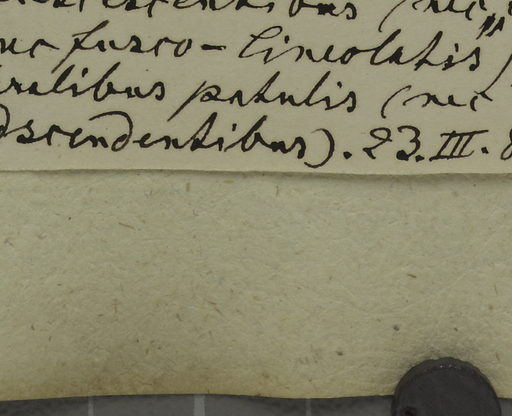 (nec
fusco-lineolatis"
patulis (nec
adscendentibus). 23.III.